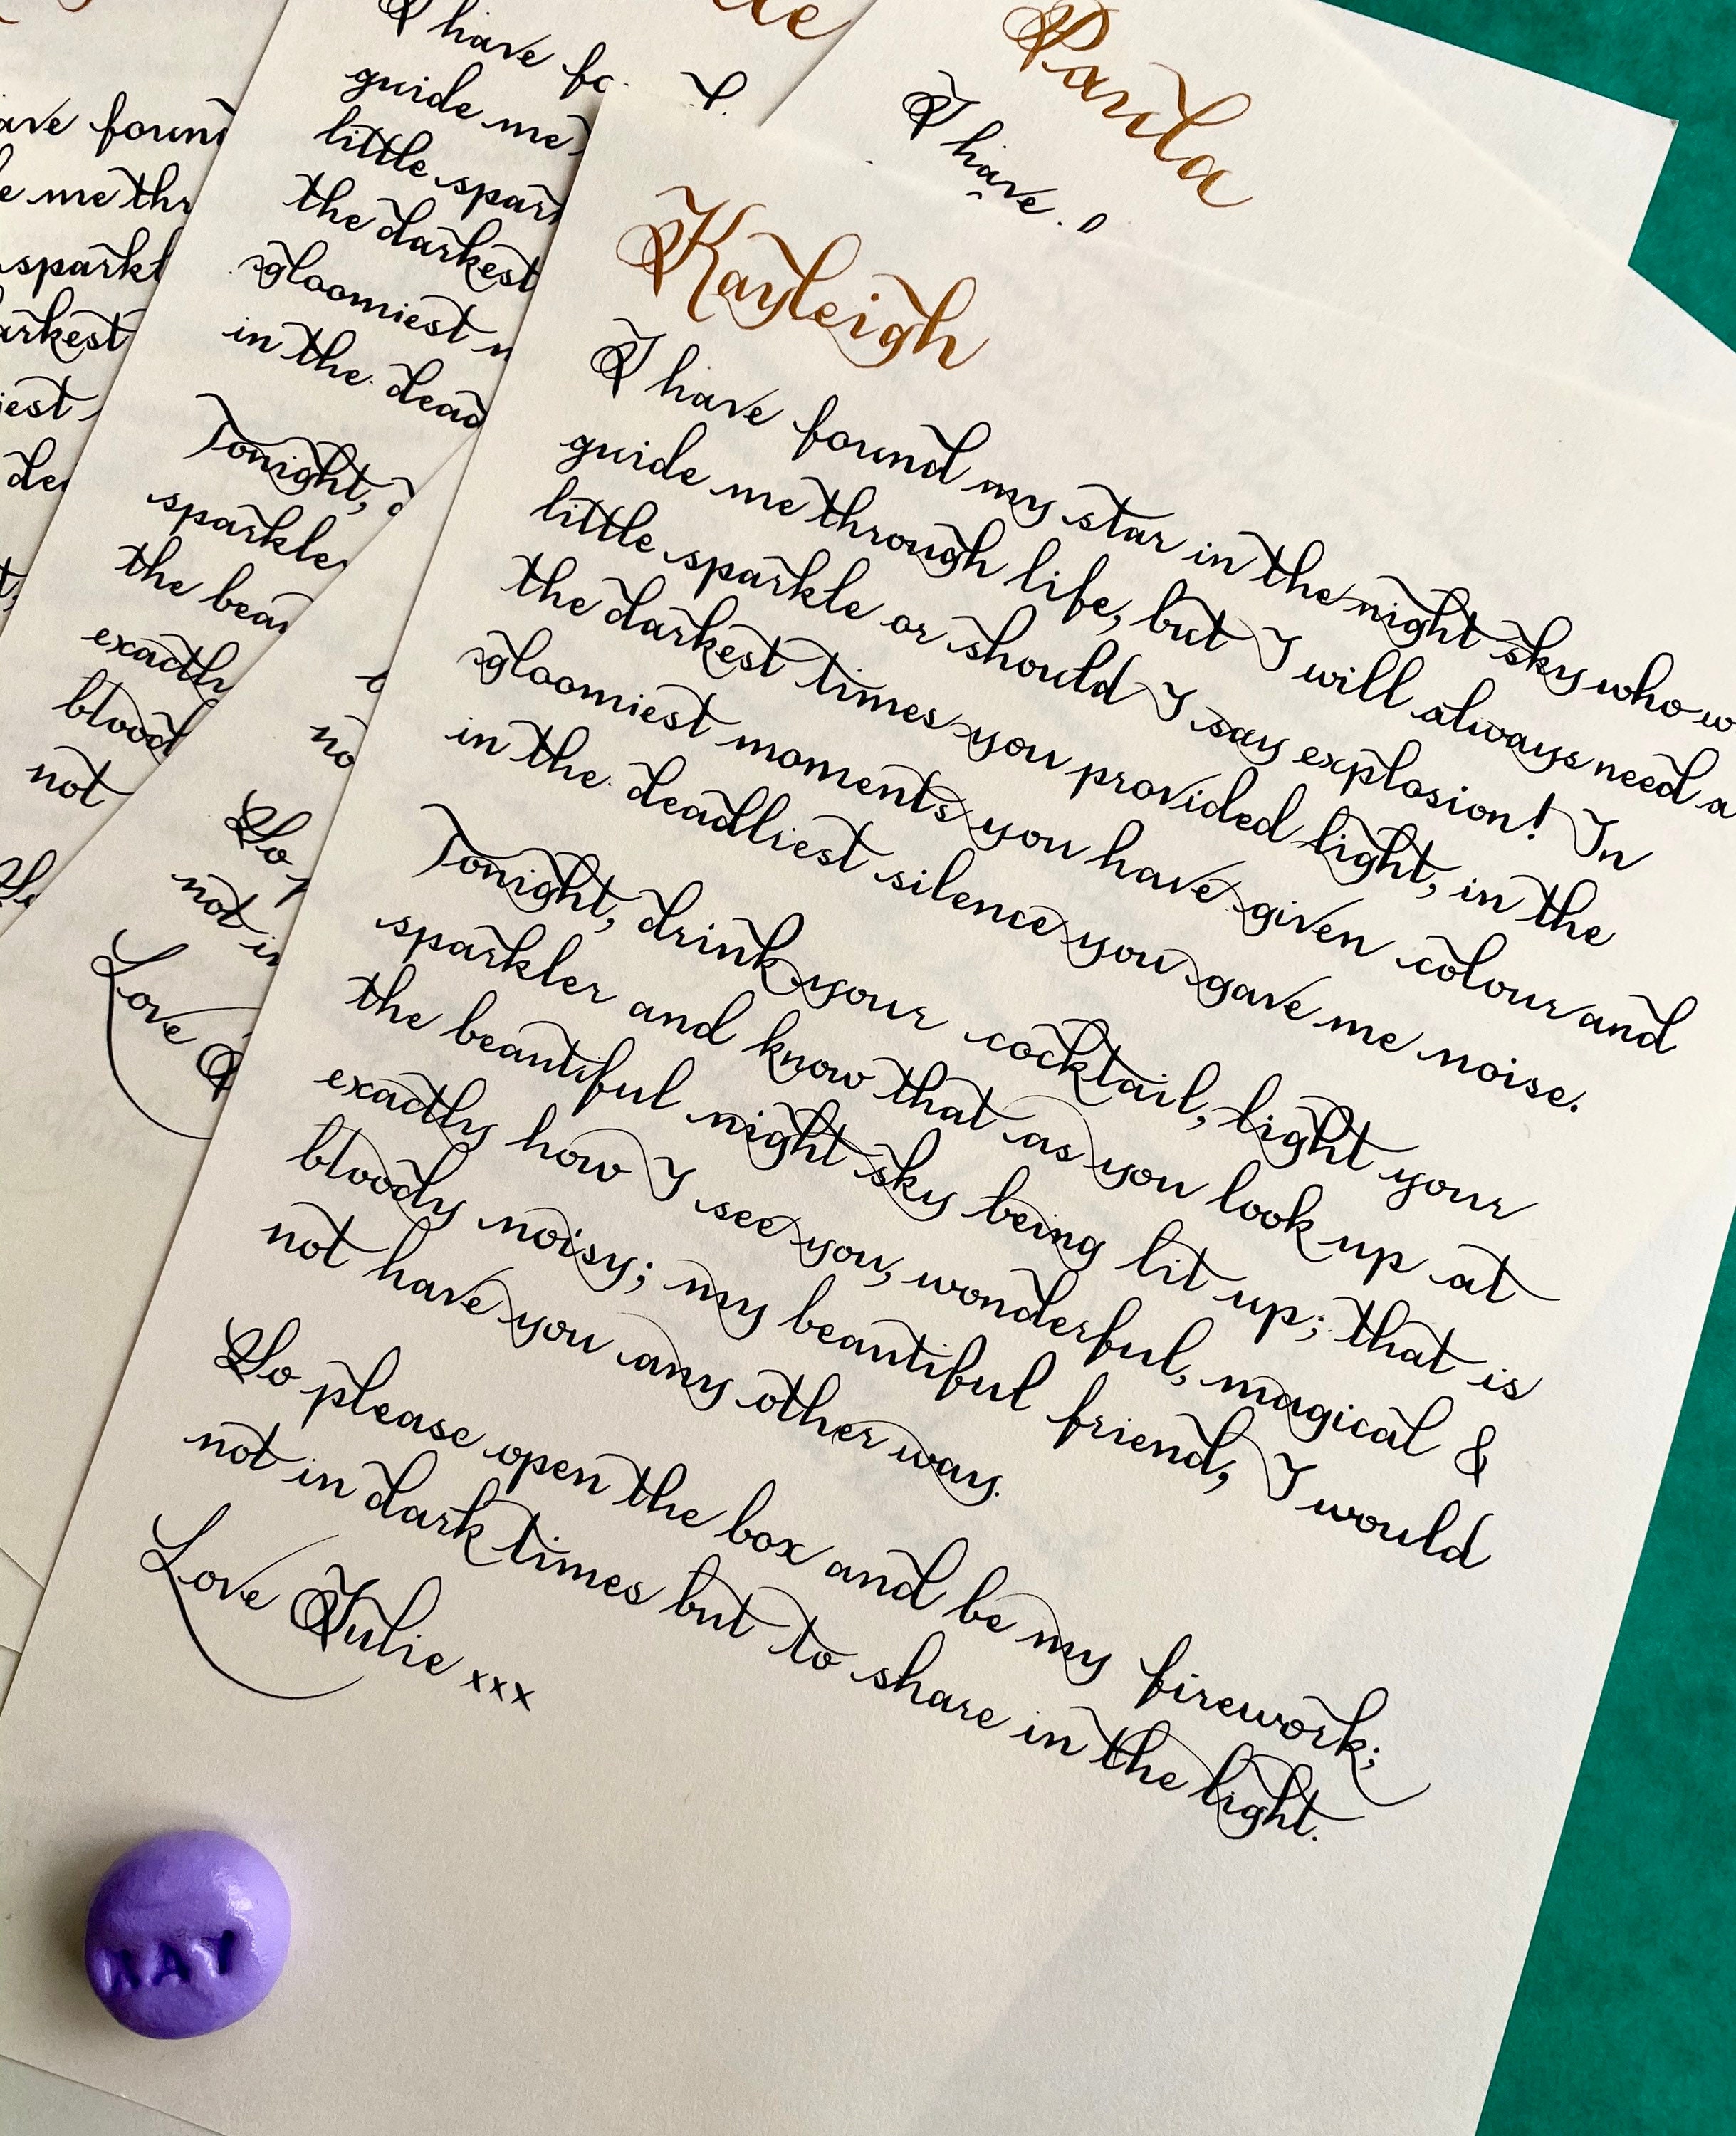 Kayleigh
I have found my star in the night sky who
guide me through life, but I will always need a
little sparkle or should I say explosion! In
the darkest times you provided light, in the
gloomiest moments you have given colour and
in the deadliest silence you gave me noise.
Tonight, drink your cocktail, light your
sparkler and know that as you look up at
the beautiful night sky being lit up; that is
exactly how I see you, wonderful, magical &
bloody noisy; my beautiful friend, I would
not have you any other way.
So please open the box and be my firework;
not in dark times but to share in the light.
Love Julie xxx
Paula
I have
I have
guide me
little
the darkest
gloomiest
in the
Tonight,
sparkle
the
not
So
not
Love
me
not